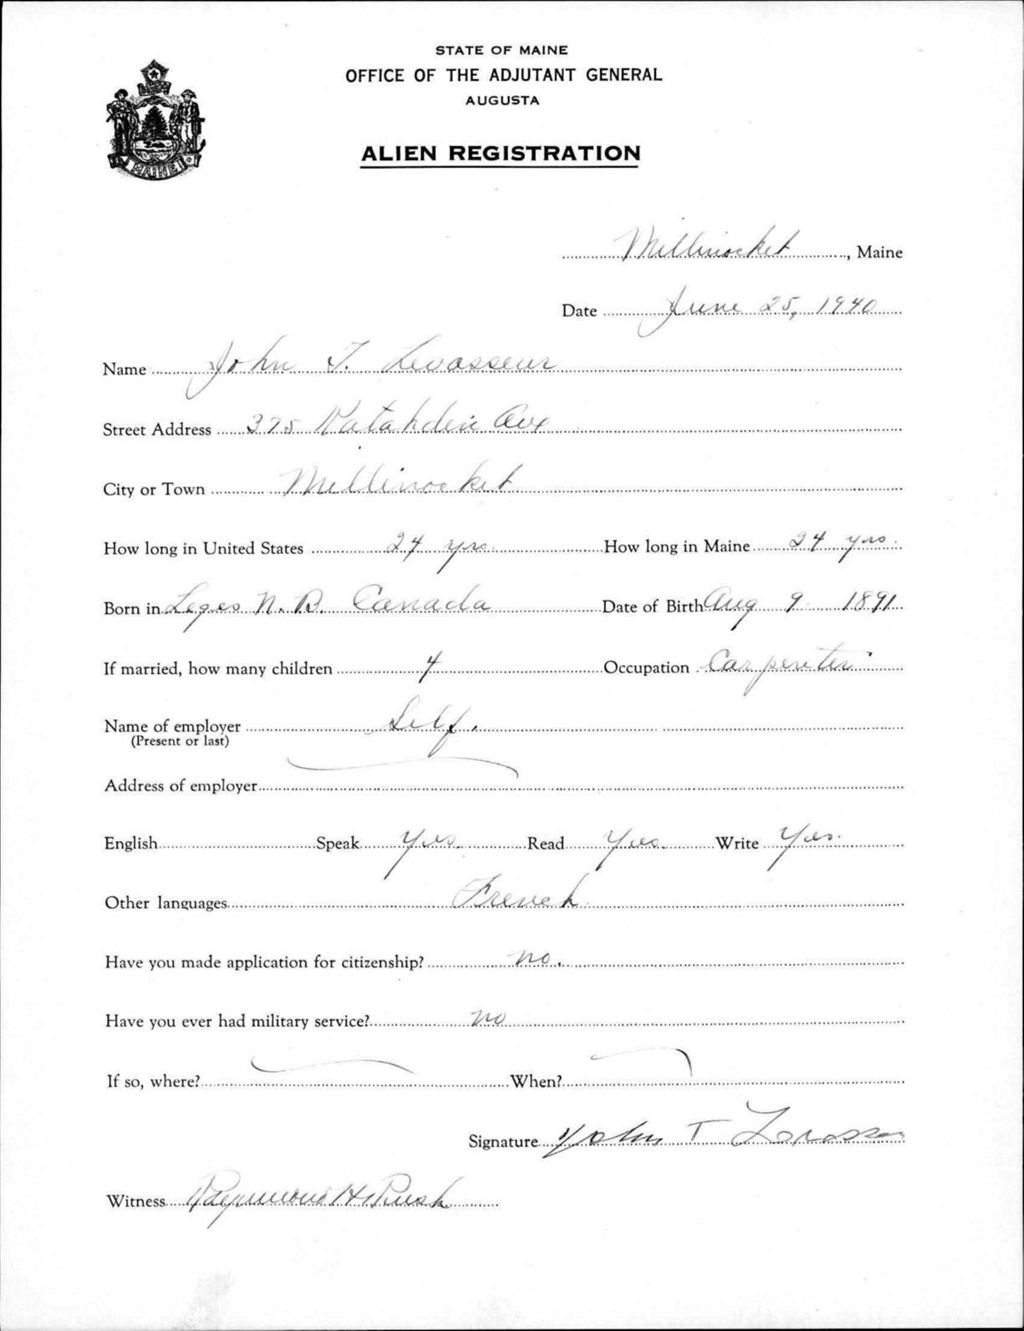 STATE OF MAINE
OFFICE OF THE ADJUTANT GENERAL
AUGUSTA
ALIEN REGISTRATION
MAINE
Millinocket, Maine
Date June 25, 1940
Name John T. Levasseur
Street Address 375 Katahdin Ave
City or Town Millinocket
How long in United States 24 yrs. How long in Maine 24 yrs.
Born in N. B. Canada Date of Birth Aug 9 1891
If married, how many children 4 Occupation Carpenter
Name of employer Self.
(Present or last)
Address of employer
English Speak Yes. Read Yes. Write Yes.
Other languages French
Have you made application for citizenship? no.
Have you ever had military service? no
If so, where? When?
Signature John T
Witness Raymond H Rush